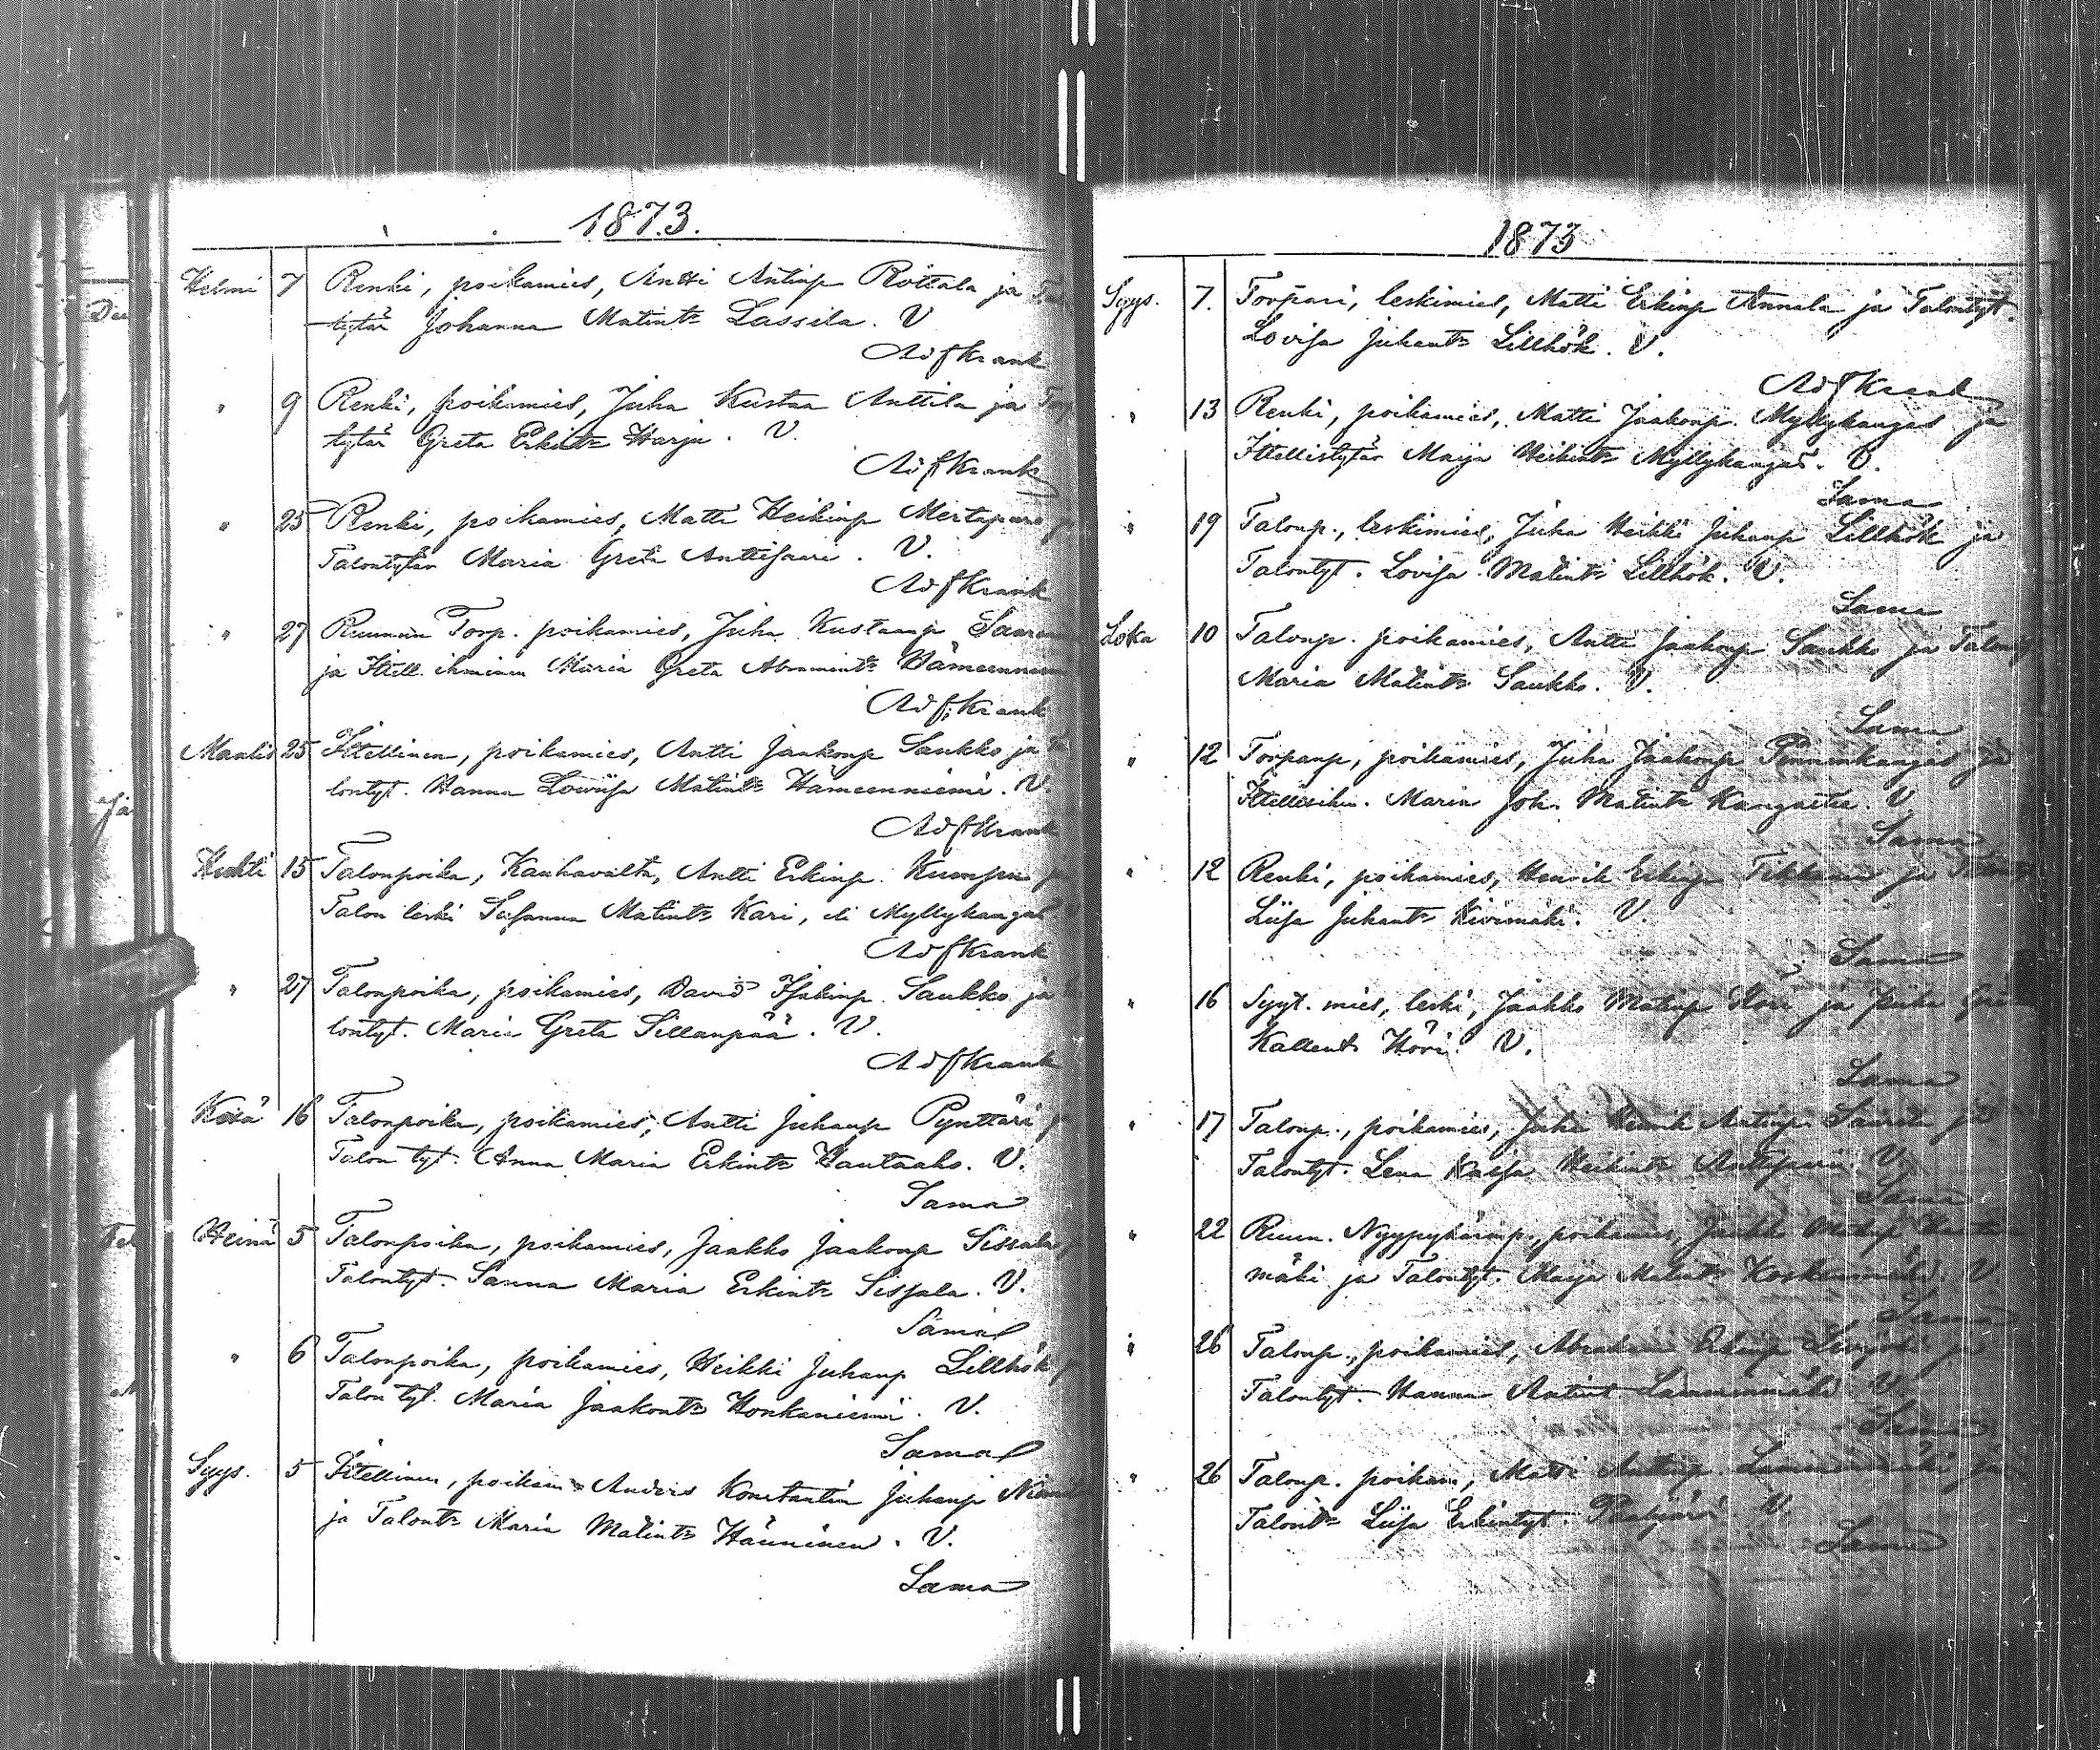 1873.
Helmi 7 Renki, poikamies, Antti Antinp Rottala ja
tytär Johanna Matint. Lassila. V
Adf Krank
" 9 Renki, poikamies, Juha Kustaa Anttila ja Torp
tytär Greta Erkint. Harju. V.
Adf Krank
" 25 Renki, poikamies, Matti Heikinp
Talontytär Maria Greta Anttisaari. V.
Adf Krank
" 27 Ruunun Torp. poikamies, Juha Kustaanp
ja Itell. ihminen Maria Greta Abramint.
Adf Krank
Maalis 25 Itellinen, poikamies, Antti Jaakonp Saukko ja
lontyt. Hanna Lowiisa Matint. Hämeenniemi. V.
Adf Krank
Huhti 15 Talonpoika, Kauhavalta, Antti Erkinp.
Talon leski Susanna Matint. Kari, eli Myllykangas
Adf Krank
" 27 Talonpoika, poikamies, David Isakinp. Saukko ja
lontyt. Maria Greta Sillanpää. V.
Adf Krank
Kesä 16 Talonpoika, poikamies, Antti Juhanp Pynttäri
Talon tyt. Anna Maria Erkint. Hautaaho. V.
Sama
Heinä 5 Talonpoika, poikamies, Jaakko Jaakonp Sissala
Talontyt. Sanna Maria Erkint. Sissala. V.
Sama
" 6 Talonpoika, poikamies, Heikki Juhanp Lillhök
Talon tyt. Maria Jaakont. Honkaniemi. V.
Sama
Syys. 5 Itellinen, poikam. Anders Konstantin Juhanp
ja Talont. Maria Matint. Hänninen. V.
Sama
1873
Syys. 7. Torpari, leskimies, Matti Erkinp Annala ja Talontyt.
Lovisa Juhant. Lillhök. V.
Adf Krank
" 13 Renki, poikamies, Matti Jaakonp. Myllykangas ja
Itellistytär Maija Heikint. Myllykangas. V.
Sama
" 19 Talonp., leskimies, Juha Heikki Juhanp Lillhök ja
Talontyt. Lovisa Matint. Lillhök. V.
Sama
Loka 10 Talonp. poikamies, Antti Jaakonp Saukko ja
Maria Matint. Saukko. V.
Sama
" 12 Torpanp, poikamies, Juha Jaakonp Penninkangas ja
Maria Joh. Matint V
Sama
" 12 Renki, poikamies, Henrik Erkinp Tikkanen ja
Liisa Juhant. Kivimäki. V.
Sama
" 16 Syyt. mies, leski, Jaakko Matinp Höri ja piika
Kallent. Höri. V.
Sama
" 17 Talonp., poikamies, Juha Henrik Antinp ja
Talontyt. Lena Kaisa Heikint. V.
Sama
" 22 Ruun. poikamies, Jaakko Matinp
mäki ja Talontyt. Maija Matint. Koskenmäki. V
Sama
" 26 Talonp., poikamies, Abraham Erkinp ja
Talontyt. Hanna Antint Lamminmäki V.
Sama
" 26 Talonp. poikam., Matti Anttinp. Lamminmäki ja
Talont. Liisa Erkintyt. V.
Sama